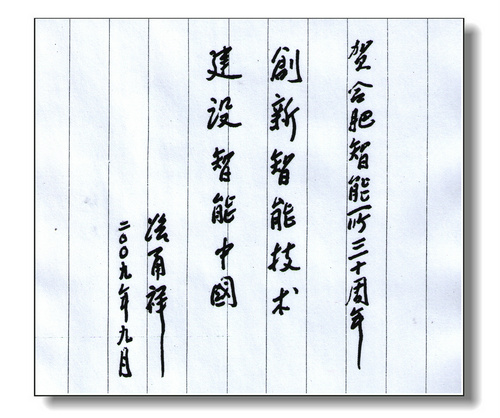 贺合肥智能所三十周年
創新智能技术
建设智能中國
路甬祥
二〇〇九年九月